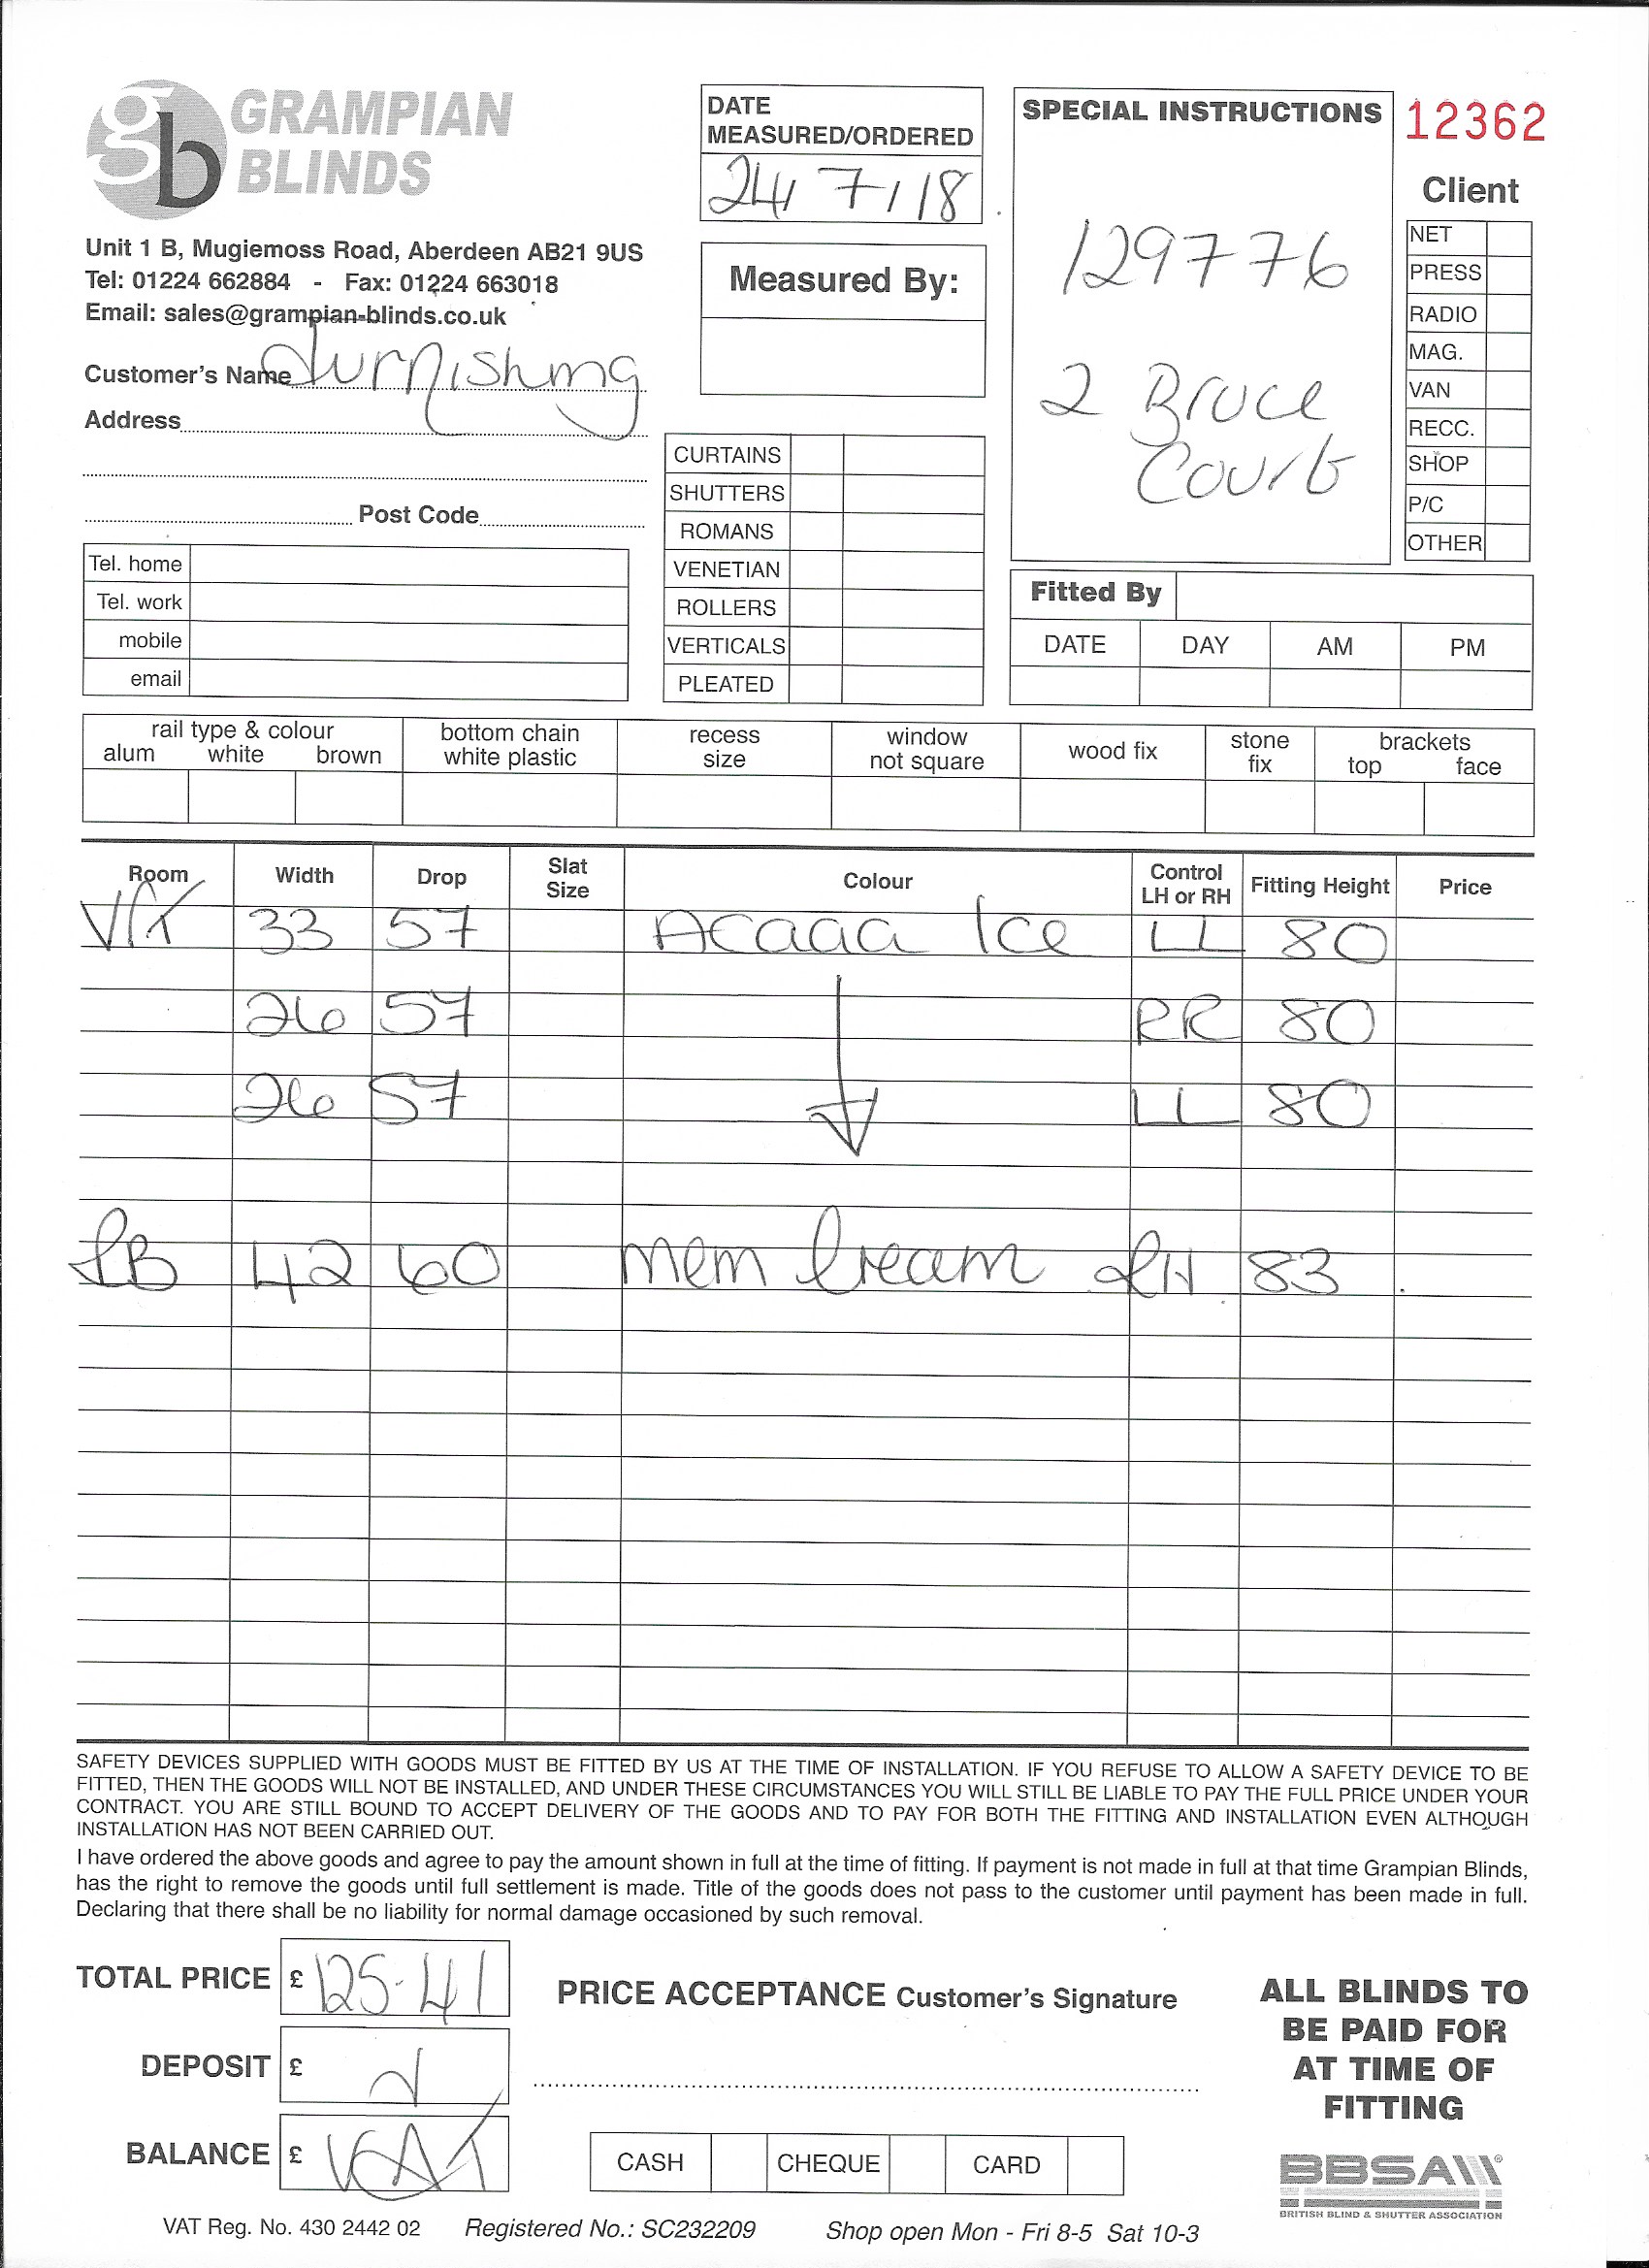 gb GRAMPIAN BLINDS
Unit 1 B, Mugiemoss Road, Aberdeen AB21 9US
Tel: 01224 662884 - Fax: 01224 663018
Email: sales@grampian-blinds.co.uk
Customer's Name furnishing
Address
Post Code
Tel. home
Tel. work
mobile
email
DATE
MEASURED/ORDERED
24/7/18
Measured By:
CURTAINS
SHUTTERS
ROMANS
VENETIAN
ROLLERS
VERTICALS
PLEATED
SPECIAL INSTRUCTIONS
129776
2 Bruce
Court
12362
Client
NET
PRESS
RADIO
MAG.
VAN
RECC.
SHOP
P/C
OTHER
Fitted By
DATE DAY AM PM
rail type & colour
alum white brown
bottom chain
white plastic
recess
size
window
not square
wood fix
stone
fix
brackets
top face
Room Width Drop Slat Size Colour Control LH or RH Fitting Height Price
33 57 Ice LL 80
26 57 RR 80
26 57 LL 80
42 60 mem cream RH 83
SAFETY DEVICES SUPPLIED WITH GOODS MUST BE FITTED BY US AT THE TIME OF INSTALLATION. IF YOU REFUSE TO ALLOW A SAFETY DEVICE TO BE
FITTED, THEN THE GOODS WILL NOT BE INSTALLED, AND UNDER THESE CIRCUMSTANCES YOU WILL STILL BE LIABLE TO PAY THE FULL PRICE UNDER YOUR
CONTRACT. YOU ARE STILL BOUND TO ACCEPT DELIVERY OF THE GOODS AND TO PAY FOR BOTH THE FITTING AND INSTALLATION EVEN ALTHOUGH
INSTALLATION HAS NOT BEEN CARRIED OUT.
I have ordered the above goods and agree to pay the amount shown in full at the time of fitting. If payment is not made in full at that time Grampian Blinds,
has the right to remove the goods until full settlement is made. Title of the goods does not pass to the customer until payment has been made in full.
Declaring that there shall be no liability for normal damage occasioned by such removal.
TOTAL PRICE £ 125-41
DEPOSIT £
BALANCE £ VAT
PRICE ACCEPTANCE Customer's Signature
CASH CHEQUE CARD
ALL BLINDS TO
BE PAID FOR
AT TIME OF
FITTING
BBSA
BRITISH BLIND & SHUTTER ASSOCIATION
VAT Reg. No. 430 2442 02 Registered No.: SC232209 Shop open Mon - Fri 8-5 Sat 10-3